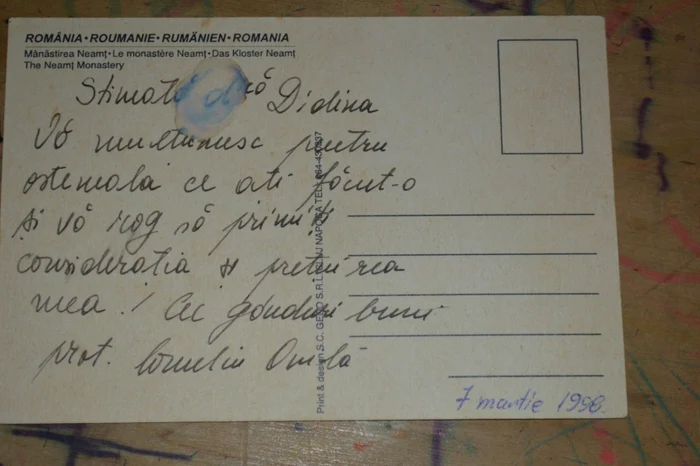 ROMÂNIA • ROUMANIE • RUMÄNIEN • ROMANIA
Mănăstirea Neamţ • Le monastère Neamţ • Das Kloster Neamţ
The Neamţ Monastery
Stimată Didina
Vă mulţumesc pentru
osteneala ce aţi făcut-o
şi vă rog să primiţi
consideraţia şi preţuirea
mea! Cu gânduri bune
prot. Corneliu
7 martie 1998.
Print & design S.C. S.R.L. CLUJ NAPOCA TEL.